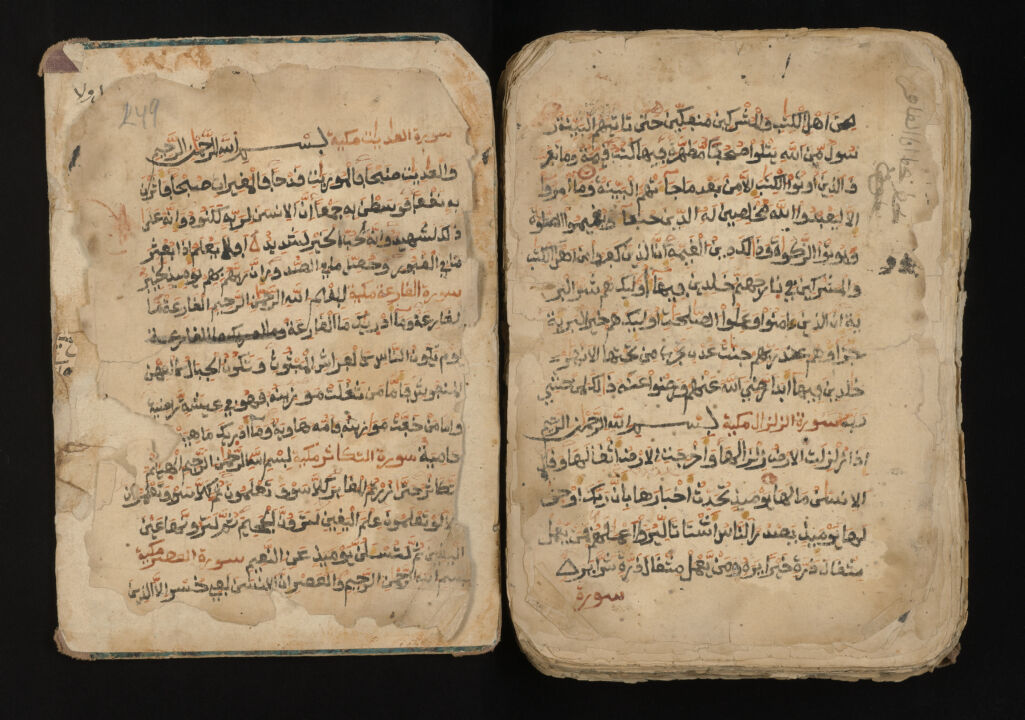 يكن اهل الكتب والمشركين منفكين حتى تاتيهم البينة ر
سول من الله يتلوا صحفا مطهرة فيها كتب قيمة وما تفر
ق الذين اوتوا الكتب الا من بعد ما جاتهم البينة وما امروا
الا ليعبدوا الله مخلصين له الدين حنفا ويقيموا الصلوة
ويوتوا الزكوة وذلك دين القيمة ان الذين كفروا من اهل الكتب
والمشركين في نار جهنم خلدين فيها اوليك هم شر البر
ية ان الذين ءامنوا وعملوا الصلحت اوليك هم خير البرية
جزاوهم عند ربهم جنت عدن تجري من تحتها الانهر
خلدين فيها ابدا رضي الله عنهم ورضوا عنه ذلك لمن خشي
ربه سورة الزلزال مكية بسم الله الرحمن الرحيم
اذا زلزلت الارض زلزالها واخرجت الارض اثقالها وقال
الانسن ما لها يوميذ تحدث اخبارها بان ربك اوحى
لها يوميذ يصدر الناس اشتاتا ليروا اعملهم فمن يعمل
مثقال ذرة خيرا يره ومن يعمل مثقال ذرة شرا يره
سورة
249
سورة العديت مكية بسم الله الرحمن الرحيم
والعديت ضبحا فالموريت قدحا فالمغيرات صبحا فاثرن
به نقعا فوسطن به جمعا ان الانسن لربه لكنود وانه على
ذلك لشهيد وانه لحب الخير لشديد افلا يعلم اذا بعثر
ما في القبور وحصل ما في الصدور ان ربهم بهم يوميذ لخبير
سورة القارعة مكية بسم الله الرحمن الرحيم القارعة ما
القارعة وما ادريك ما القارعة
يوم يكون الناس كالفراش المبثوث وتكون الجبال كالعهن
المنفوش فاما من ثقلت موزينه فهو في عيشة راضية
واما من خفت موزينه فامه هاوية وما ادريك ماهيه
حامية سورة التكاثر مكية بسم الله الرحمن الرحيم الهيكم
التكاثر حتى زرتم المقابر كلا سوف تعلمون ثم كلا سوف تعلمون
كلا لو تعلمون علم اليقين لترون الجحيم ثم لترونها عين
اليقين ثم لتسلن يوميذ عن النعيم سورة العصر مكية
بسم الله الرحمن الرحيم والعصر ان الانسن لفي خسر الا الذين